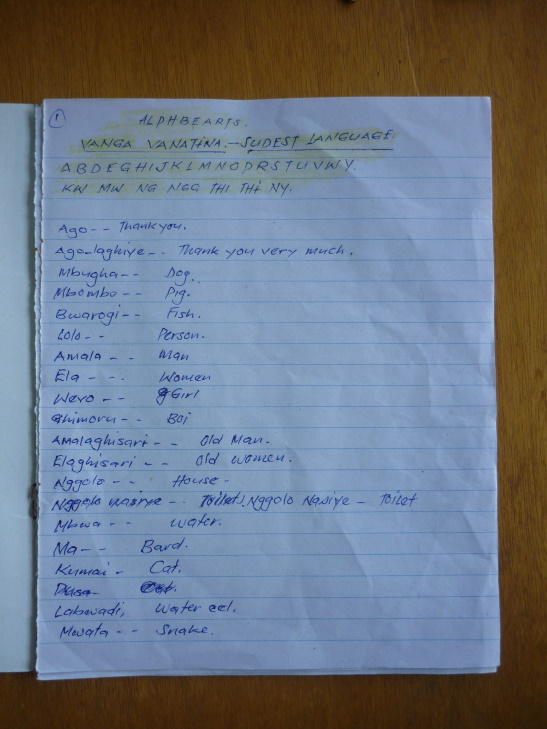 1
ALPHBEARTS.
VANGA VANATINA.-SUDEST LANGUAGE
ABDEGHIJKLMNOPRSTUVWY.
KW MW NG NGG THI THI NY.
Ago -- Thank you.
Ago-laghiye -- Thank you very much.
Mbugha -- Dog.
Mbombo -- Pig.
Bwarogi -- Fish.
Lolo -- Person.
Amala -- Man
Ela --- Women
Wevo -- Girl
Ghimoru -- Boi
Amalaghisari -- Old Man.
Elaghisari -- Old Women.
Nggolo --- House -
Nggolo Nasiye -- Toilet. Nggolo Nasiye - Toilet
Mbwa --- Water.
Ma -- Bard.
Kumai - Cat.
Labwadi, Water eel.
Mwata -- Snake.